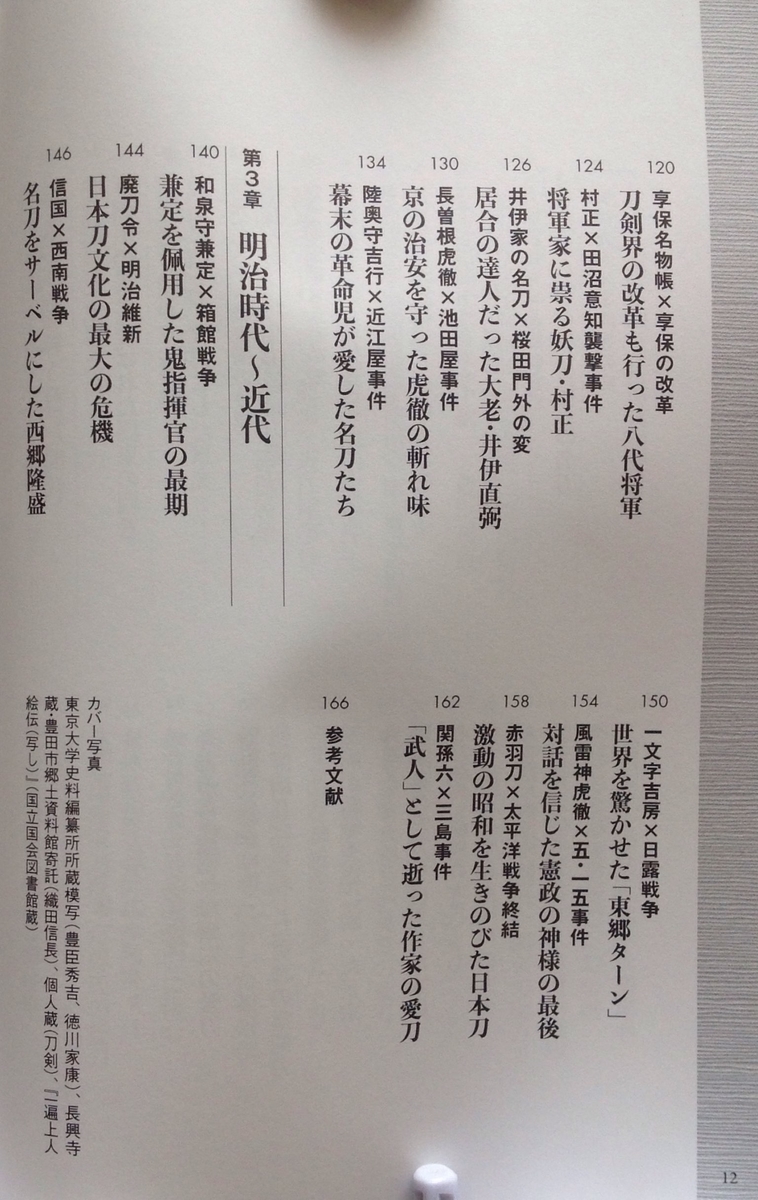 120
享保名物帳×享保の改革
刀剣界の改革も行った八代将軍
124
村正×田沼意知襲撃事件
将軍家に祟る妖刀・村正
126
井伊家の名刀×桜田門外の変
居合の達人だった大老・井伊直弼
130
長曽根虎徹×池田屋事件
京の治安を守った虎徹の斬れ味
134
陸奥守吉行×近江屋事件
幕末の革命児が愛した名刀たち
第3章 明治時代〜近代
140
和泉守兼定×箱館戦争
兼定を佩用した鬼指揮官の最期
144
廃刀令×明治維新
日本刀文化の最大の危機
146
信国×西南戦争
名刀をサーベルにした西郷隆盛
150
一文字吉房×日露戦争
世界を驚かせた「東郷ターン」
154
風雷神虎徹×五・一五事件
対話を信じた憲政の神様の最後
158
赤羽刀×太平洋戦争終結
激動の昭和を生きのびた日本刀
162
関孫六×三島事件
「武人」として逝った作家の愛刀
166
参考文献
カバー写真
東京大学史料編纂所所蔵模写(豊臣秀吉、徳川家康)、長興寺
蔵・豊田市郷土資料館寄託(織田信長)、個人蔵(刀剣)、『一遍上人
絵伝(写し)』(国立国会図書館蔵)
12